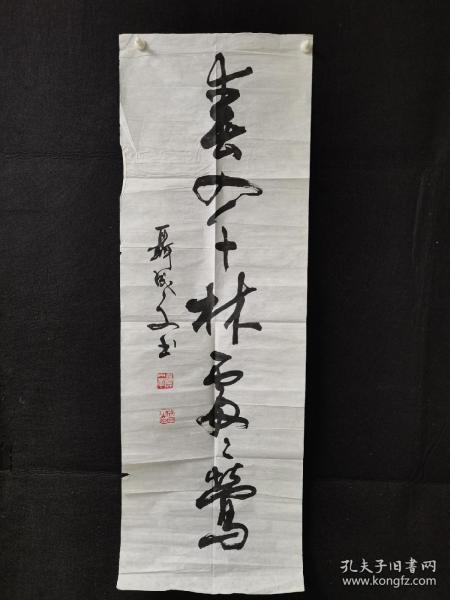 春入千林處々鶯
聶成文书
孔夫子旧书网
www.kongfz.com